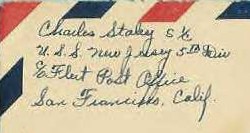 Charles Staley S 1/c
U.S.S. New Jersey 5th Div
℅ Fleet Post Office
San Francisco, Calif.